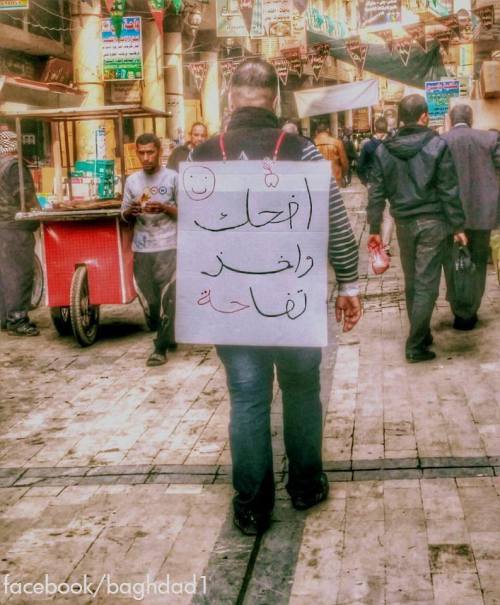 اضحك
واخذ
تفاحة
facebook/baghdad1